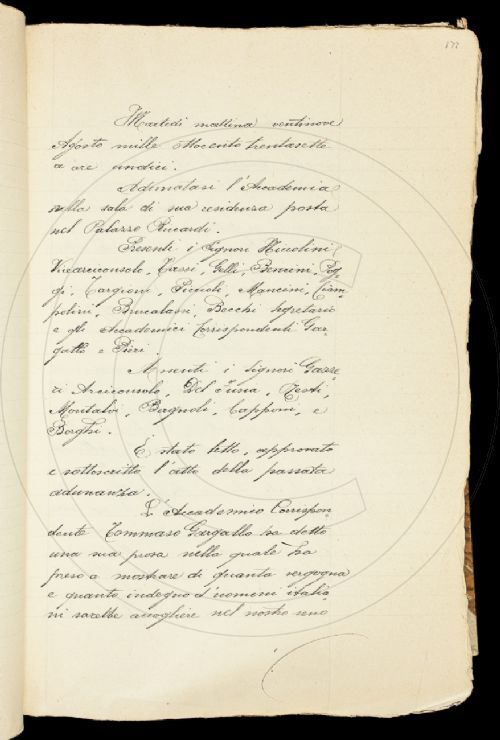 Martedì mattina ventinove
Agosto mille Ottocento trentasette
a ore undici.
Adunatasi l'Accademia
nella sala di sua residenza posta
nel Palazzo Riccardi.
Presenti i Signori Niccolini
Vicearciconsolo, Tassi, Gelli, Bencini, Pog-
gi, Targioni, Piccioli, Mancini, Ciam-
polini, Brucalassi, Becchi Segretario
e gli Accademici Corrispondenti Gar-
gallo e Pieri.
Assenti i Signori Gazze-
ri Arciconsolo, Del Furia, Zesti,
Montalvi, Bagnoli, Capponi, e
Borghi.
È stato letto, approvato
e sottoscritto l'atto della passata
adunanza.
L'Accademico Corrispon-
dente Tommaso Gargallo ha detto
una sua prosa nella quale ha
preso a mostrare di quanta vergogna
e quanto indegno d'uomini italia-
ni sarebbe accogliere nel nostro uno